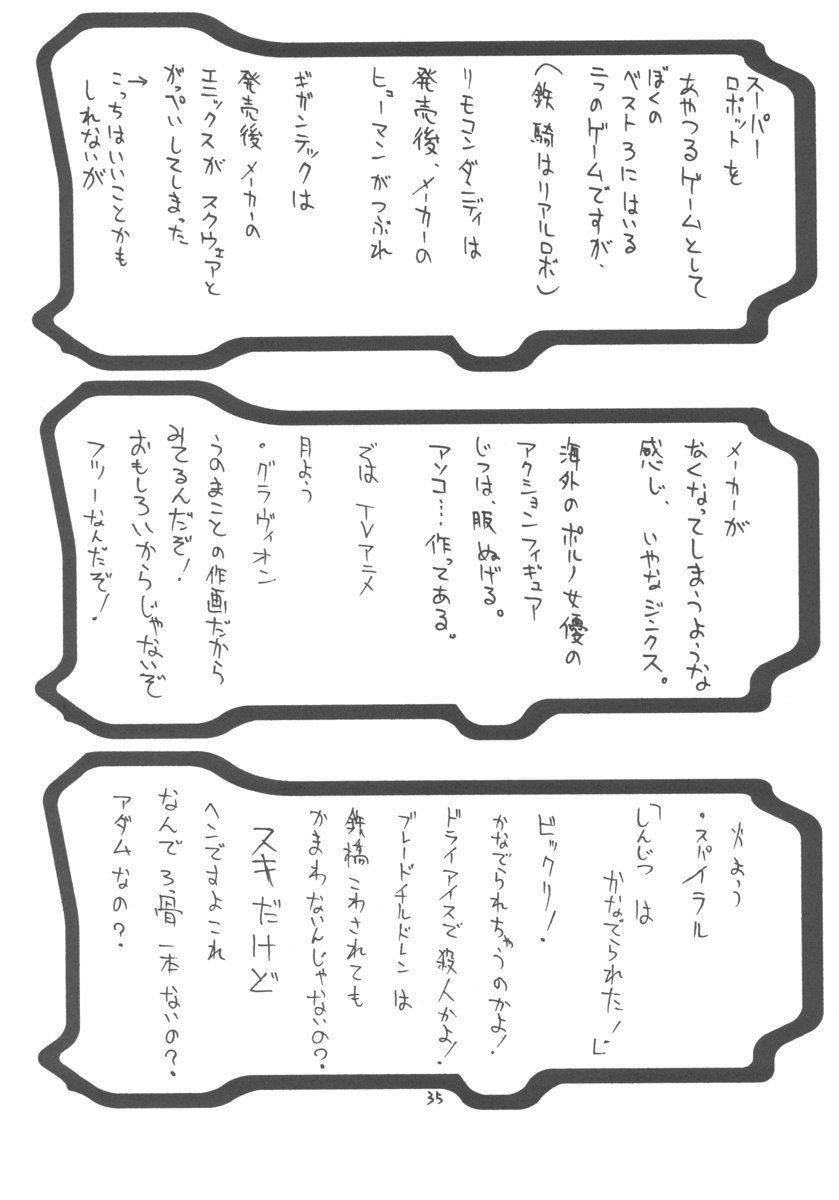 スーパー
ロボットを
あやつるゲームとして
ぼくの
ベスト3にはいる
二つのゲームですが、
(鉄騎はリアルロボ)
リモコンダンディは
発売後、メーカーの
ヒューマンがつぶれ
ギガンテックは
発売後メーカーの
エニックスが スクウェアと
がっぺいしてしまった
→こっちはいいことかも
しれないが
メーカーが
なくなってしまうような
感じ、いやなジンクス。
海外のポルノ女優の
アクションフィギュア
じつは、服ぬげる。
アソコ……作ってある。
では TVアニメ
月よう
・グラヴィオン
うのまことの作画だから
みてるんだぞ!
おもしろいからじゃないぞ
フツーなんだぞ!
火よう
・スパイラル
「しんじつは
かなでられた!」
ビックリ!
かなでられちゃうのかよ!
ドライアイスで殺人かよ!
ブレードチルドレンは
鉄橋こわされても
かまわないんじゃないの?
スキだけど
ヘンですよこれ
なんでろっ骨一本ないの?
アダムなの?
35